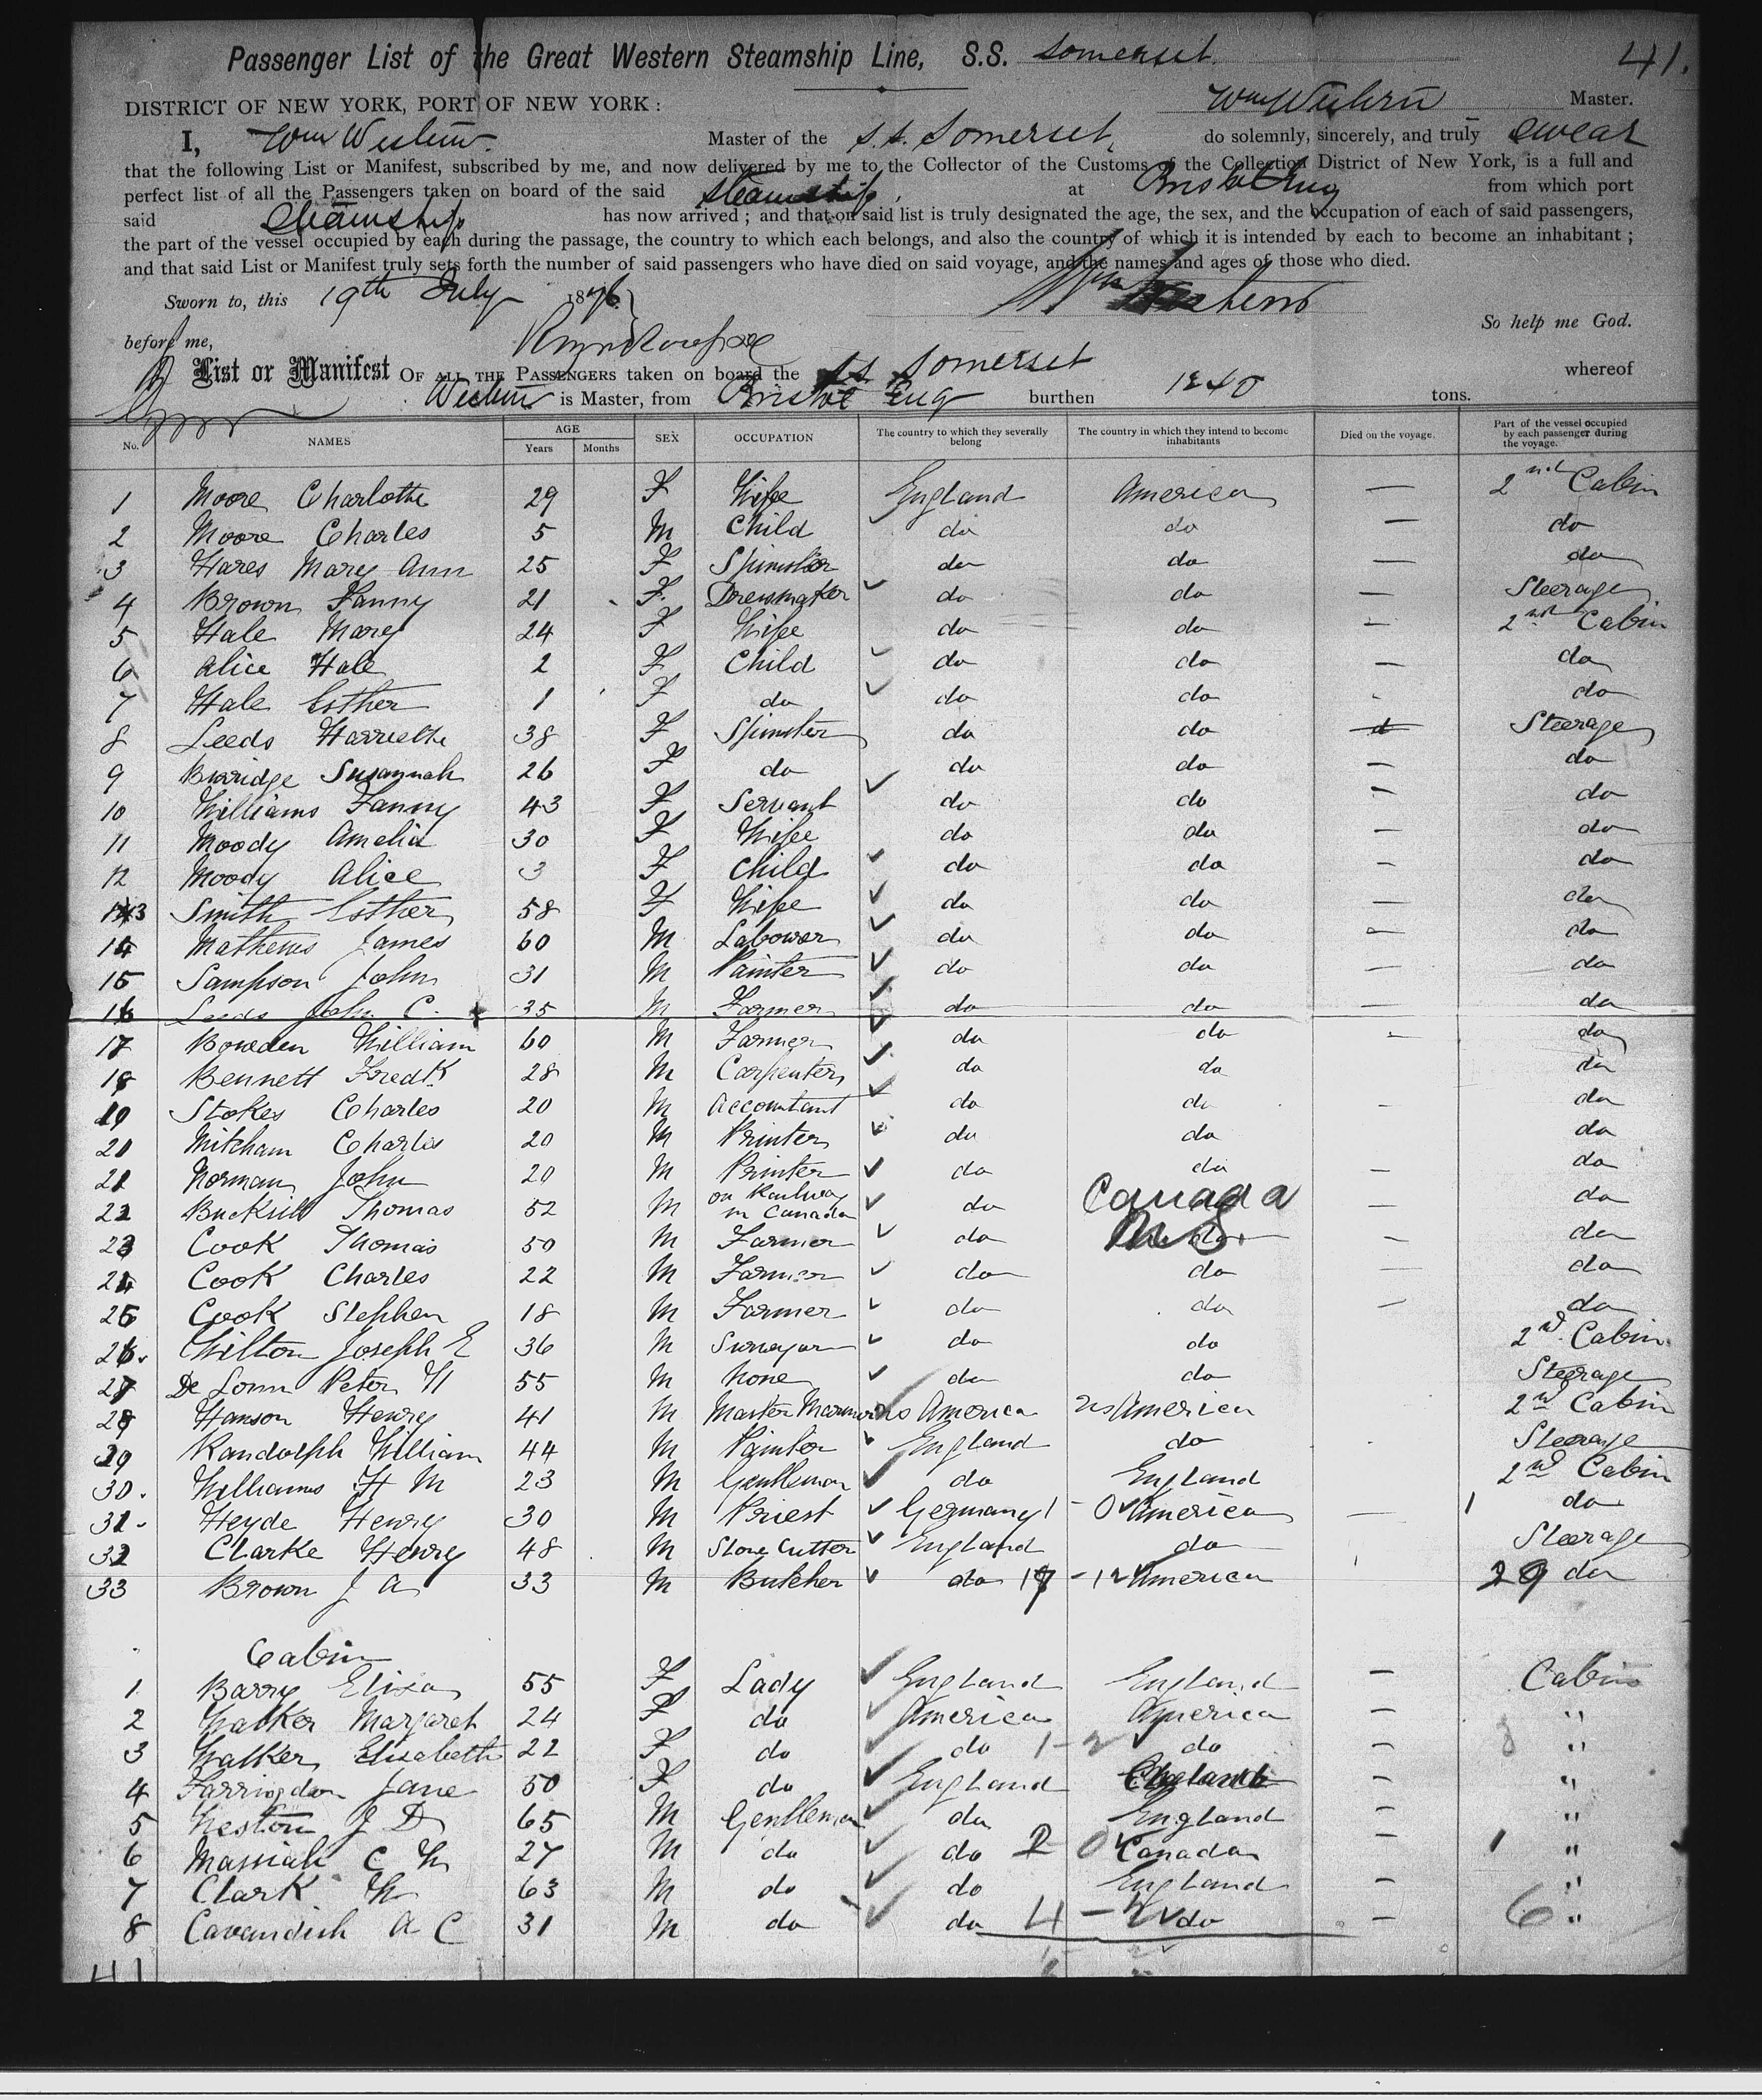 Passenger List of the Great Western Steamship Line, S.S. Somerset. 41.
DISTRICT OF NEW YORK, PORT OF NEW YORK : Wm Western Master.
I, Wm Western. Master of the S.S. Somerset, do solemnly, sincerely, and truly swear
that the following List or Manifest, subscribed by me, and now delivered by me to the Collector of the Customs of the Collection District of New York, is a full and
perfect list of all the Passengers taken on board of the said steamship, at Bristol Eng from which port
said Steamship has now arrived ; and that on said list is truly designated the age, the sex, and the occupation of each of said passengers,
the part of the vessel occupied by each during the passage, the country to which each belongs, and also the country of which it is intended by each to become an inhabitant ;
and that said List or Manifest truly sets forth the number of said passengers who have died on said voyage, and the names and ages of those who died.
Sworn to, this 19th July 1876. Wm Western
So help me God.
before me,
List or Manifest OF ALL THE PASSENGERS taken on board the SS Somerset whereof
Western is Master, from Bristol Eng burthen 1240 tons.
No. NAMES AGE Years Months SEX OCCUPATION The country to which they severally belong The country in which they intend to become inhabitants Died on the voyage. Part of the vessel occupied by each passenger during the voyage.
1 Moore Charlotte 29 F Wife England America — 2nd Cabin
2 Moore Charles 5 M Child do do — do
3 Hares Mary Ann 25 F Spinster do do — do
4 Brown Fanny 21 F. Dressmaker do do — Steerage
5 Hale Mary 24 F Wife do do — 2nd Cabin
6 Alice Hale 2 F Child do do — do
7 Hale Esther 1 F do do do - do
8 Leeds Harriette 38 F Spinster do do Steerage
9 Burridge Susannah 26 F do do do — do
10 Williams Fanny 43 F Servant do do — do
11 Moody Amelia 30 F Wife do do — do
12 Moody Alice 3 F Child do do — do
13 Smith Esther 58 F Wife do do — do
14 Mathews James 60 M Labourer do do — do
15 Sampson John 31 M Painter do do — do
16 Leeds John C. 35 M Farmer do do — do
17 Bowden William 60 M Farmer do do — do
18 Bennett Fredk 28 M Carpenter do do do
19 Stokes Charles 20 M Accountant do do - do
20 Mitcham Charles 20 M Printer do do do
21 Norman John 20 M Printer do do — do
22 Thomas 52 M on Railway in Canada do Canada — do
23 Cook Thomas 50 M Farmer do U.S. — do
24 Cook Charles 22 M Farmer do do — do
25 Cook Stephen 18 M Farmer do do — do
26. Joseph E 36 M Surveyor do do 2nd Cabin
27 Peter H 55 M None do do Steerage
28 Hanson Henry 41 M Master Mariner US America US America 2nd Cabin
29 Randolph William 44 M Painter England do Steerage
30. Williams H M 23 M Gentleman do England 2nd Cabin
31. Heyde Henry 30 M Priest Germany 1 - 0 America — 1 do
32 Clarke Henry 48 M Stone Cutter England do Steerage
33 Brown J A 33 M Butcher do 17 - 12 America 29 do
Cabin
1 Barry Eliza 55 F Lady England England — Cabin
2 Walker Margaret 24 F do America America — "
3 Walker Elizabeth 22 F do do 1 - 2 do — "
4 Farringdon Jane 50 F do England England — "
5 Weston J D 65 M Gentleman do England — "
6 Massiah C W 27 M do do 0 Canada — 1 "
7 Clark W 63 M do do England — "
8 Cavendish A C 31 M do do 4 - do — 6 "
41